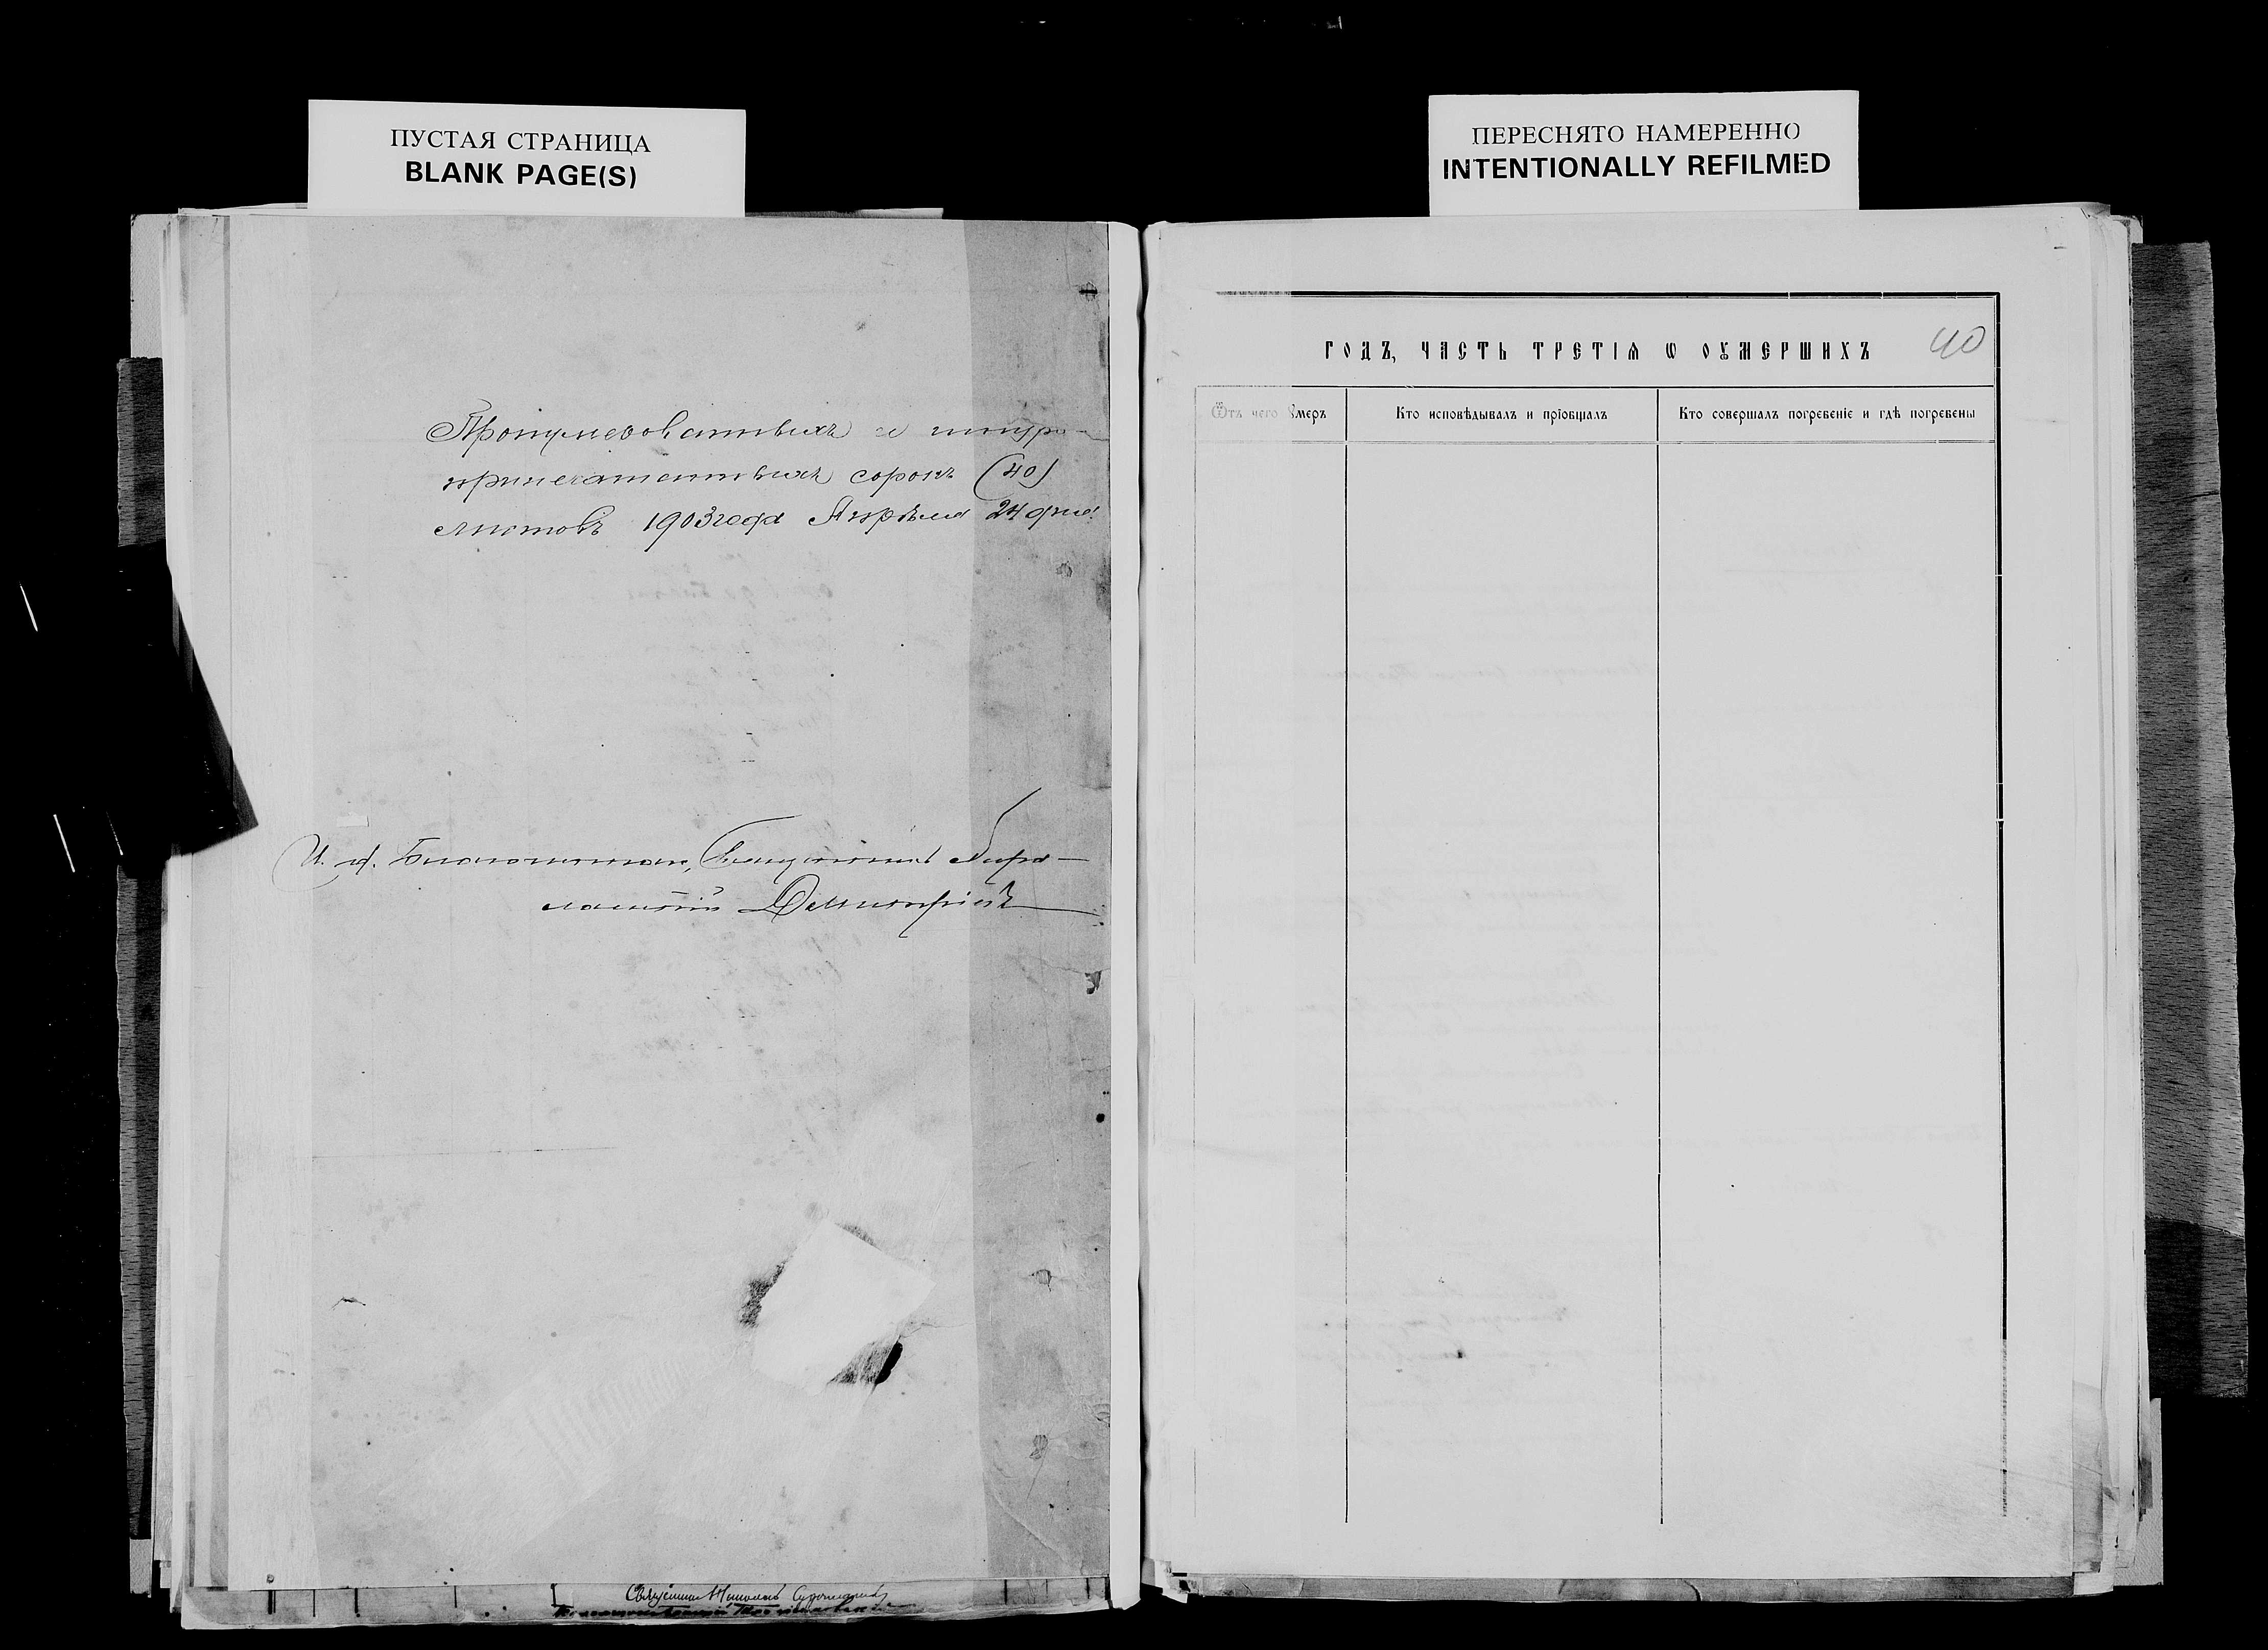 ПУСТАЯ СТРАНИЦА
BLANK PAGE(S)
Пронумерованныхъ и шнуро-
припечатанныхъ сорокъ (40)
листовъ 1903 года Апрѣля 24 дня.
И. д. Благочиннаго, Священникъ
Димитрій
Священникъ Николай
ПЕРЕСНЯТО НАМЕРЕННО
INTENTIONALLY REFILMED
годъ, часть третїѧ ѡ оумершихъ 40
Ѿтъ чего умеръ
Кто исповѣдывалъ и прїобщалъ
Кто совершалъ погребенїе и гдѣ погребены